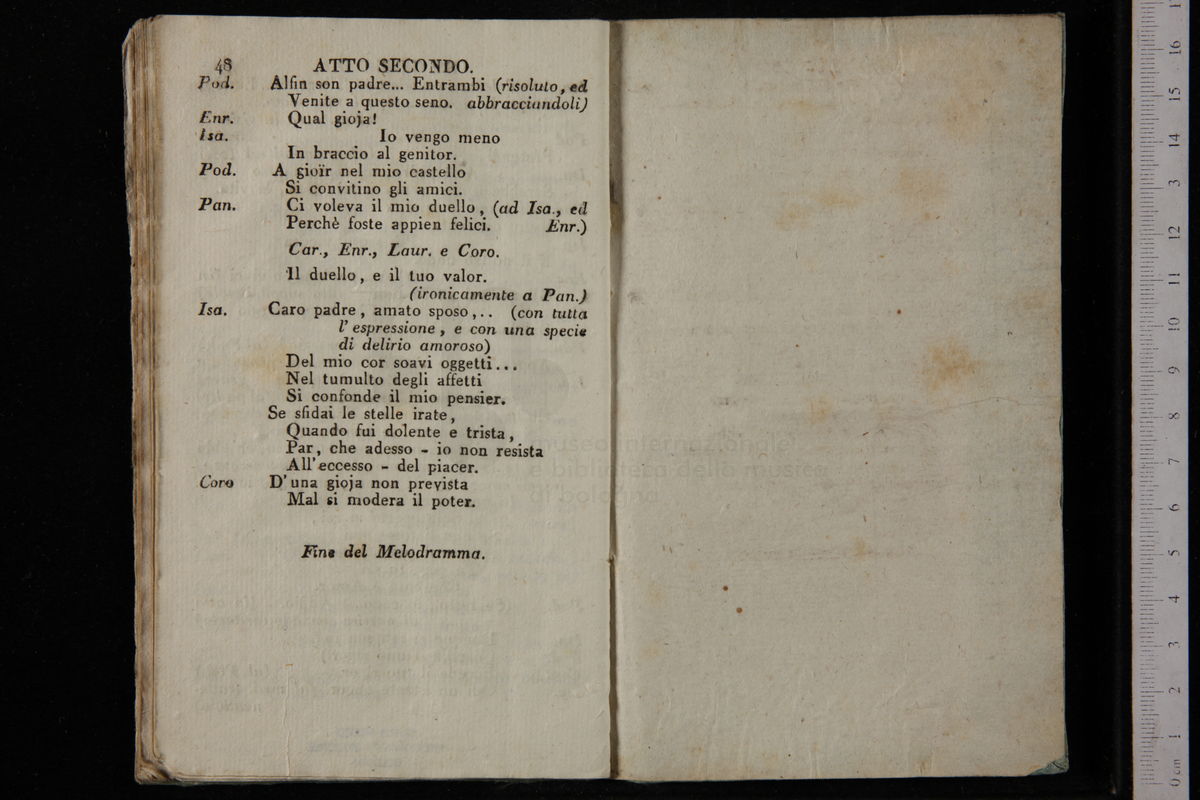 48 ATTO SECONDO.
Pod. Alfin son padre... Entrambi (risoluto, ed
Venite a questo seno. abbracciandoli)
Enr. Qual gioja!
Isa. Io vengo meno
In braccio al genitor.
Pod. A gioïr nel mio castello
Si convitino gli amici.
Pan. Ci voleva il mio duello, (ad Isa., ed
Perchè foste appien felici. Enr.)
Car., Enr., Laur. e Coro.
Il duello, e il tuo valor.
(ironicamente a Pan.)
Isa. Caro padre, amato sposo,.. (con tutta
l'espressione, e con una specie
di delirio amoroso)
Del mio cor soavi oggetti...
Nel tumulto degli affetti
Si confonde il mio pensier.
Se sfidai le stelle irate,
Quando fui dolente e trista,
Par, che adesso - io non resista
All'eccesso - del piacer.
Coro D'una gioja non prevista
Mal si modera il poter.
Fine del Melodramma.
museo internazionale
e biblioteca della musica
di bologna
0 cm 1 2 3 4 5 6 7 8 9 10 11 12 13 14 15 16 17